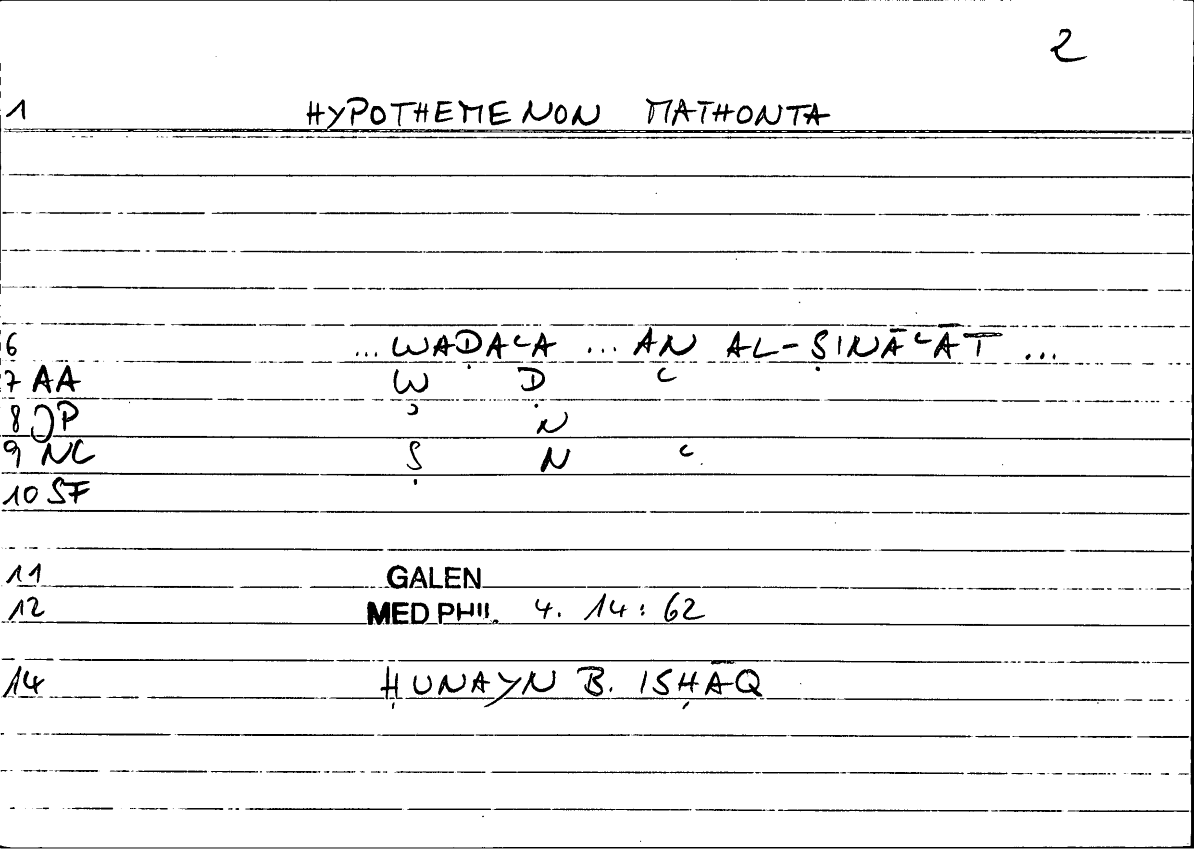 2
1 HYPOTHEMENON MATHONTA
6 ... WAḌAʿA ... AN AL-ṢINĀʿĀT ...
7 AA W Ḍ ʿ
8 JP ʾ N
9 NC Ṣ N ʿ
10 SF
11 GALEN
12 MED PHIL. 4. 14 : 62
14 ḤUNAYN B. ISḤĀQ